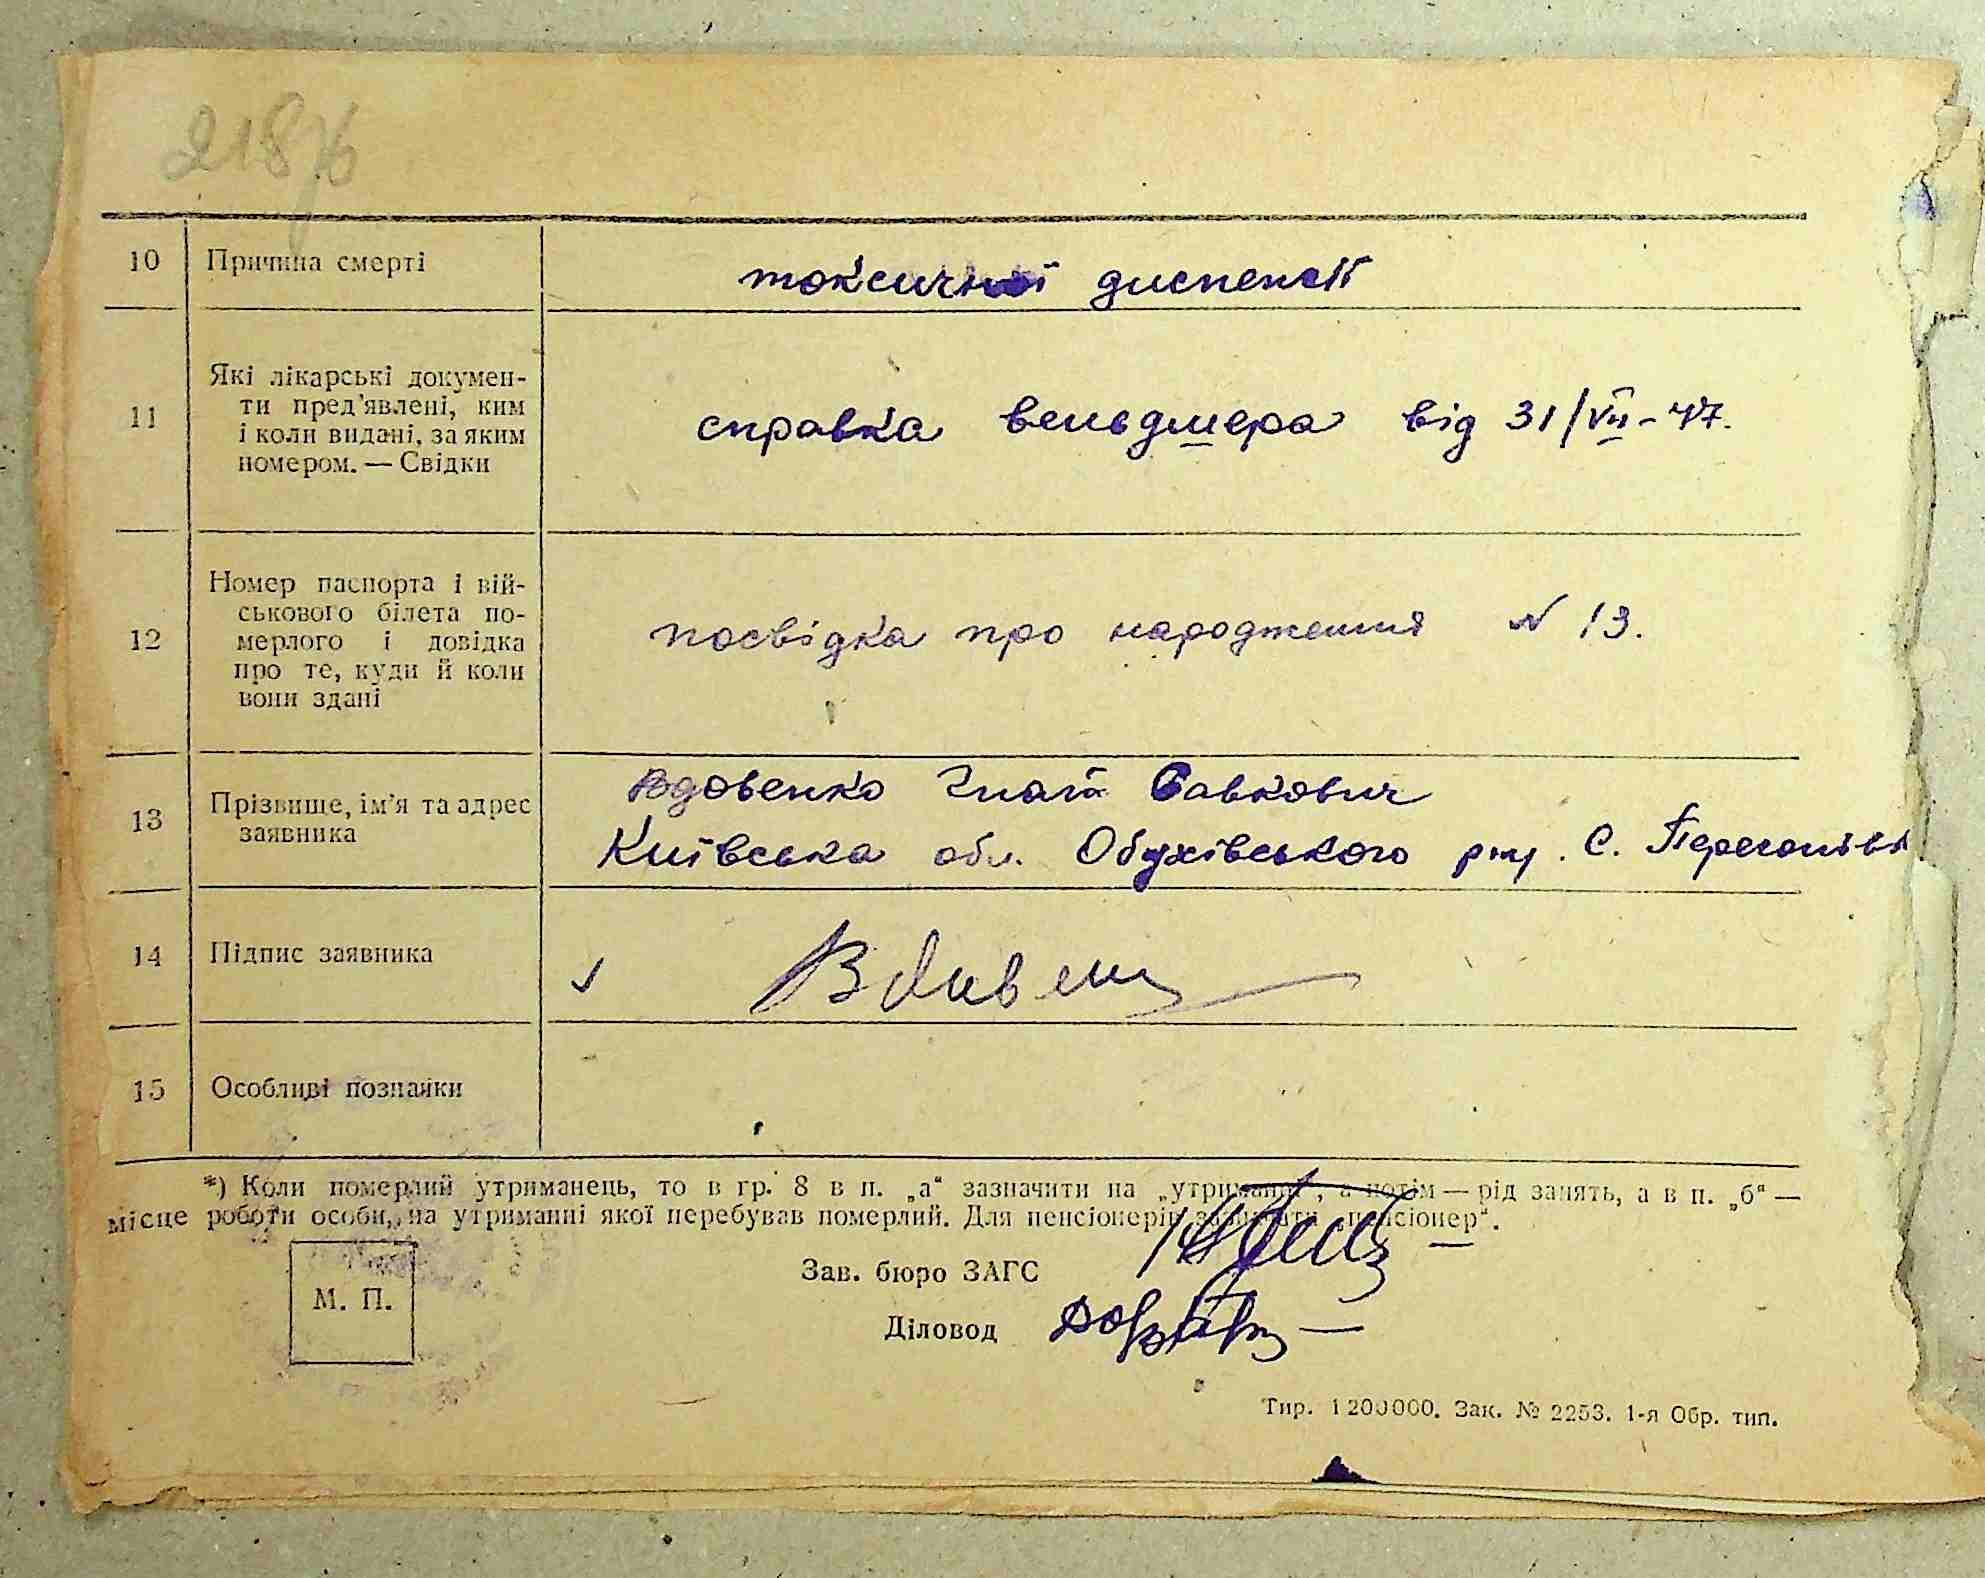 218
10 Причина смерті токсичної диспепсії
11 Які лікарські докумен-
ти пред'явлені, ким
і коли видані, за яким
номером. — Свідки
справка вельдшера від 31/VII-47.
12 Номер паспорта і вій-
ськового білета по-
мерлого і довідка
про те, куди й коли
вони здані
посвідка про народження N 13.
13 Прізвище, ім'я та адрес
заявника
Вдовенко Гнат Савкович
Київська обл. Обухівського р-ну. С. Перегонівка
14 Підпис заявника
15 Особливі познаки
*) Коли померлий утриманець, то в гр. 8 в п. „а“ зазначити на „утриманні“, а потім — рід занять, а в п. „б“ —
місце роботи особи, на утриманні якої перебував померлий. Для пенсіонерів зазначати „пенсіонер“.
Зав. бюро ЗАГС
М. П.
Діловод
Тир. 1200000. Зак. № 2253. 1-я Обр. тип.